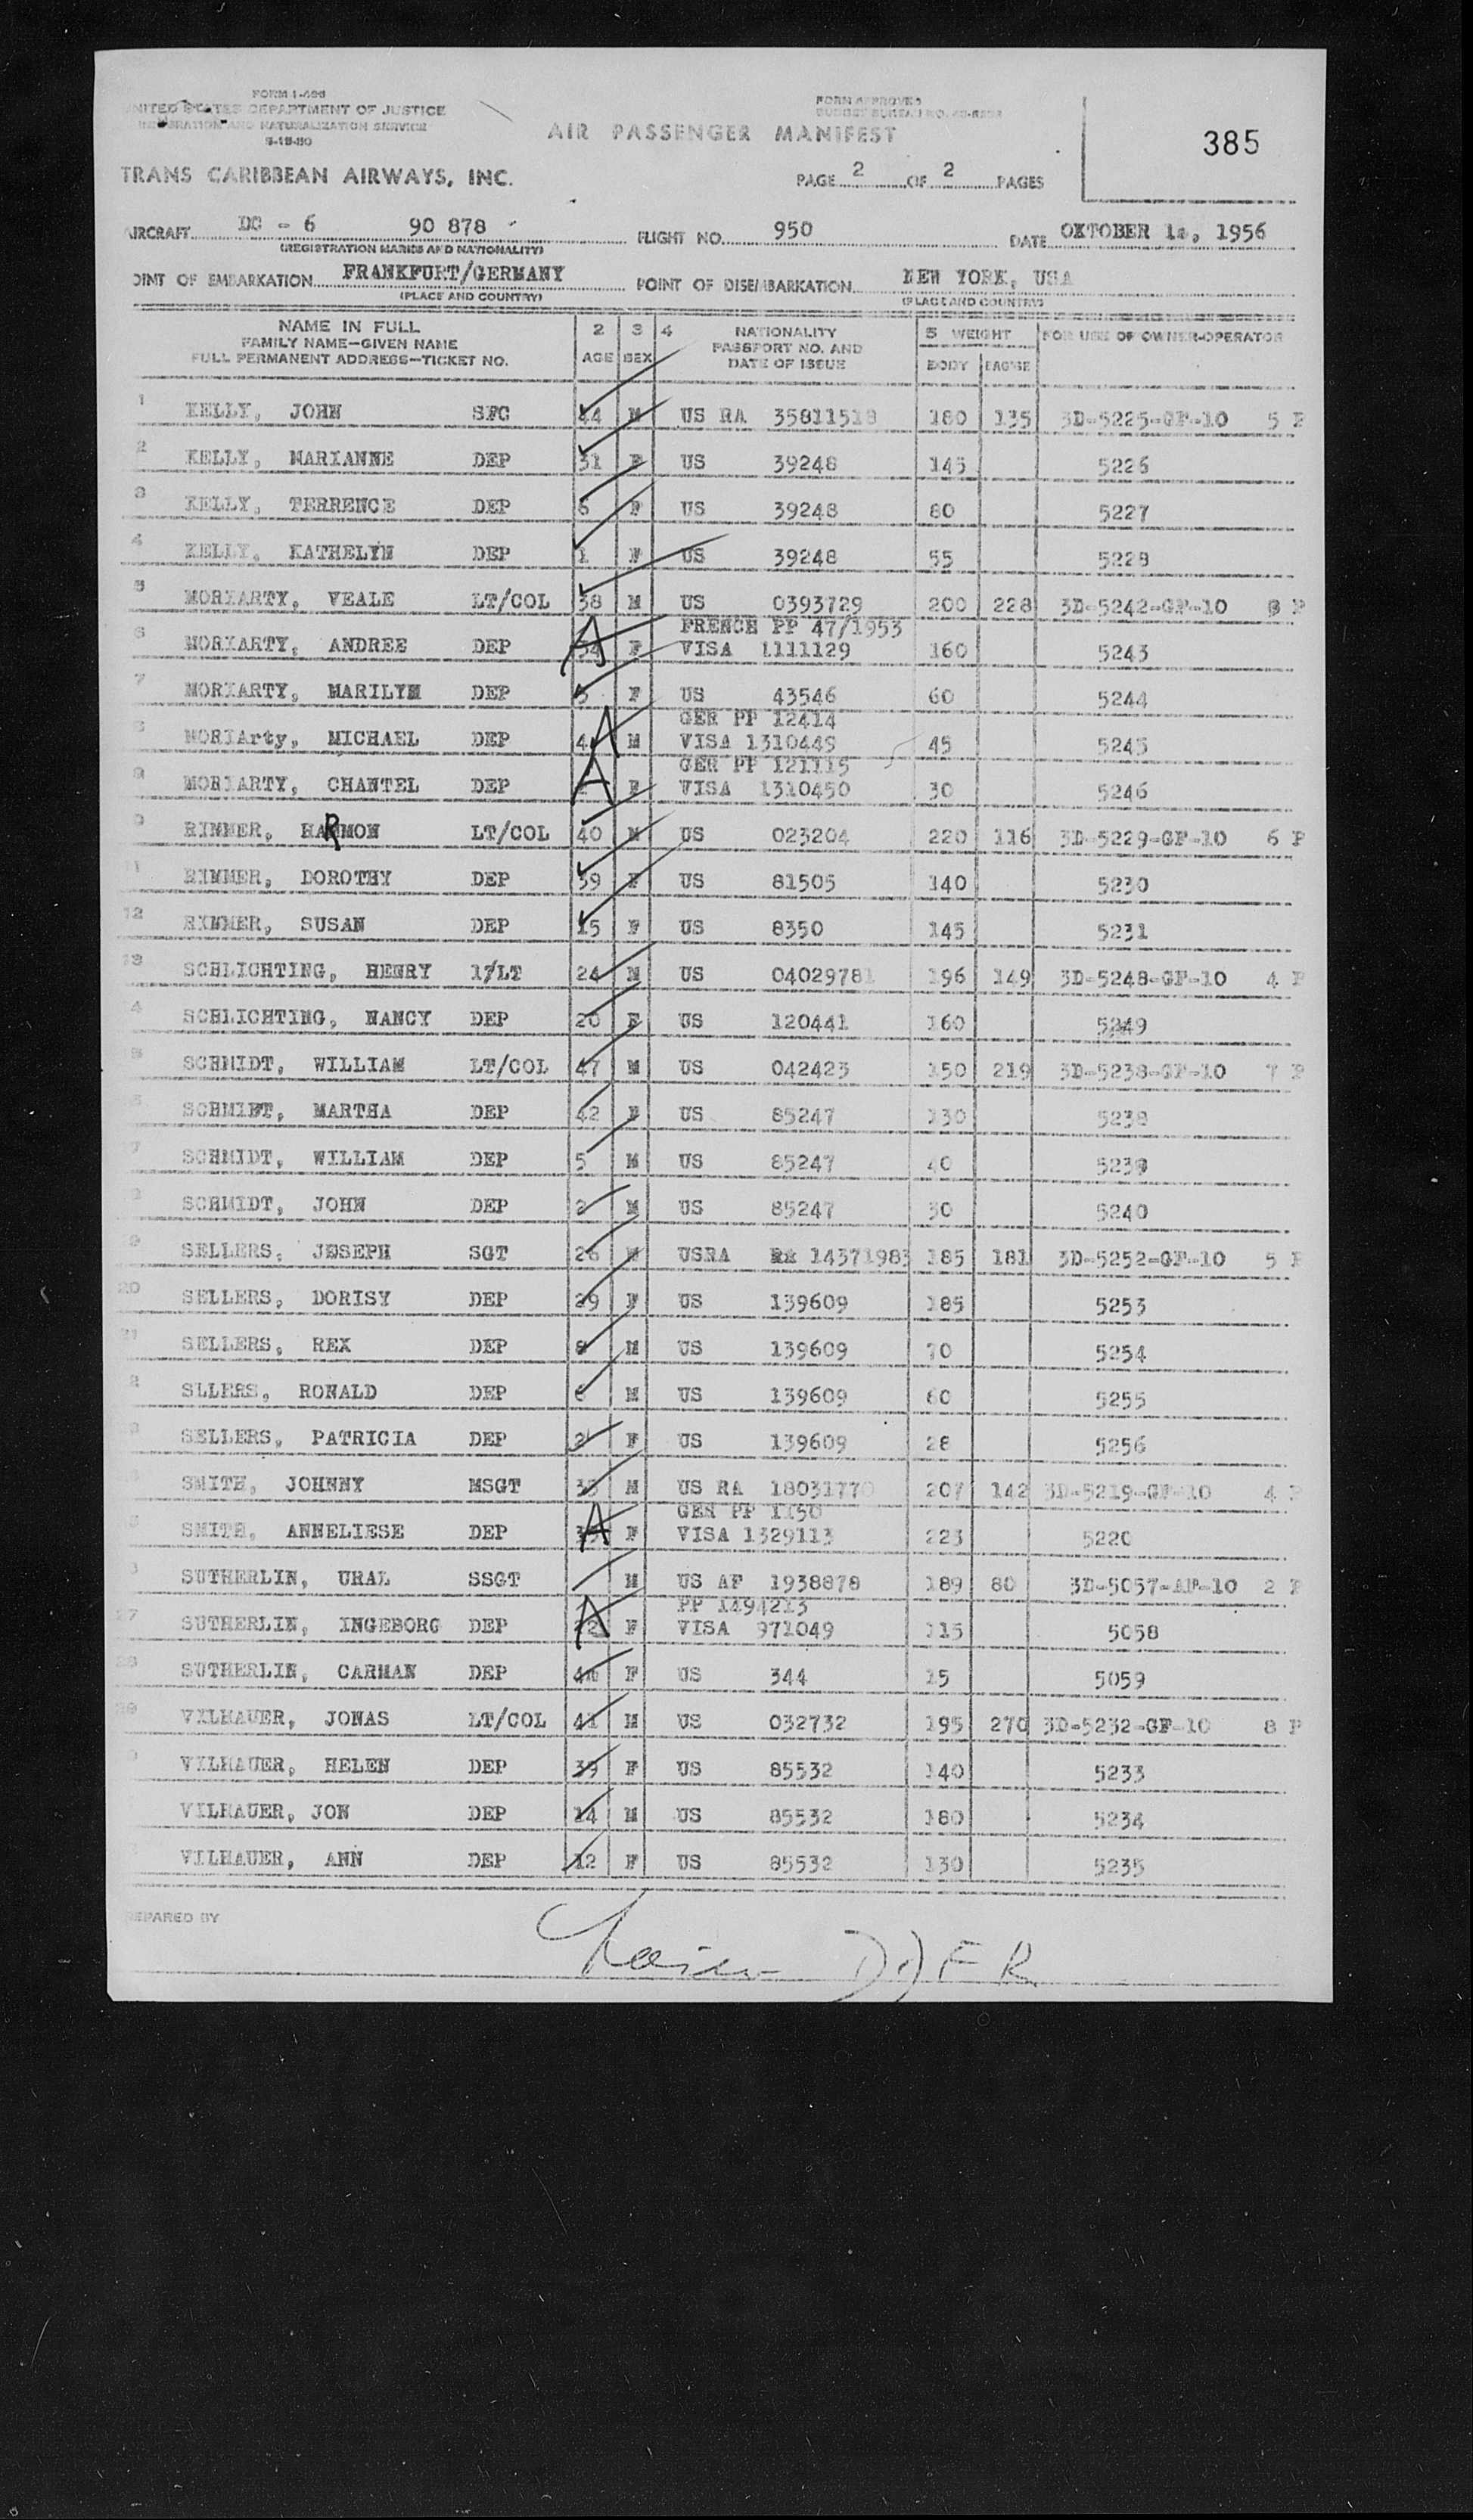 FORM I-466
UNITED STATES DEPARTMENT OF JUSTICE
IMMIGRATION AND NATURALIZATION SERVICE
FORM APPROVED
AIR PASSENGER MANIFEST
385
TRANS CARIBBEAN AIRWAYS, INC.
PAGE 2 OF 2 PAGES
AIRCRAFT DC - 6 90 878 FLIGHT NO. 950 DATE OKTOBER , 1956
(REGISTRATION MARKS AND NATIONALITY)
OINT OF EMBARKATION FRANKFURT/GERMANY POINT OF DISEMBARKATION NEW YORK, USA
(PLACE AND COUNTRY) (PLACE AND COUNTRY)
NAME IN FULL 2 3 4 NATIONALITY 5 WEIGHT FOR USE OF OWNER-OPERATOR
FAMILY NAME—GIVEN NAME PASSPORT NO. AND
FULL PERMANENT ADDRESS—TICKET NO. AGE SEX DATE OF ISSUE BODY BAG'GE
1 KELLY, JOHN SFC 44 M US RA 35811518 180 135 3D-5225-GF-10 5 P
2 KELLY, MARIANNE DEP 31 F US 39248 145 5226
3 KELLY, TERRENCE DEP 6 F US 39248 80 5227
4 KELLY, KATHELYN DEP 1 F US 39248 55 5228
5 MORIARTY, VEALE LT/COL 38 M US 0393729 200 228 3D-5242-GF-10 8 P
FRENCH PP 47/1953
6 MORIARTY, ANDREE DEP A 34 F VISA 1111129 160 5243
7 MORIARTY, MARILYM DEP 5 F US 43546 60 5244
GER PP 12414
8 MORIArty, MICHAEL DEP 4 A M VISA 1310449 45 5245
GER PP 121115
9 MORIARTY, CHANTEL DEP A F VISA 1310450 30 5246
RIMMER, HARMON LT/COL 40 M US 023204 220 116 3D-5229-GF-10 6 P
1 RIMMER, DOROTHY DEP 39 F US 81505 140 5230
12 RIMMER, SUSAN DEP 15 F US 8350 145 5231
13 SCHLICHTING, HENRY 1/LT 24 M US 04029781 196 149 3D-5248-GF-10 4 P
4 SCHLICHTING, NANCY DEP 20 F US 120441 160 5249
5 SCHMIDT, WILLIAM LT/COL 47 M US 042423 150 219 3D-5238-GF-10 7 P
SCHMIDT, MARTHA DEP 42 F US 85247 130 5238
7 SCHMIDT, WILLIAM DEP 5 M US 85247 40 5239
SCHMIDT, JOHN DEP 2 M US 85247 30 5240
9 SELLERS, JOSEPH SGT 26 M USRA RA 14371983 185 181 3D-5252-GF-10 5 P
20 SELLERS, DORISY DEP 29 F US 139609 185 5253
21 SELLERS, REX DEP 8 M US 139609 70 5254
2 SLLERS, RONALD DEP 6 M US 139609 60 5255
3 SELLERS, PATRICIA DEP 2 F US 139609 28 5256
SMITH, JOHNNY MSGT 33 M US RA 18031770 207 142 3D-5219-GF-10 4 P
GER PP 1150
5 SMITH, ANNELIESE DEP A F VISA 1329113 223 5220
SUTHERLIN, URAL SSGT M US AF 1938878 189 80 3D-5057-AF-10 2 P
PP 1494213
27 SUTHERLIN, INGEBORG DEP A 22 F VISA 971049 115 5058
28 SUTHERLIN, CARMAN DEP F US 344 15 5059
VILHAUER, JONAS LT/COL 41 M US 032732 195 270 3D-5232-GF-10 8 P
VILHAUER, HELEN DEP 39 F US 85532 140 5233
VILHAUER, JON DEP 14 M US 85532 180 5234
VILHAUER, ANN DEP 12 F US 85532 130 5235
EPARED BY